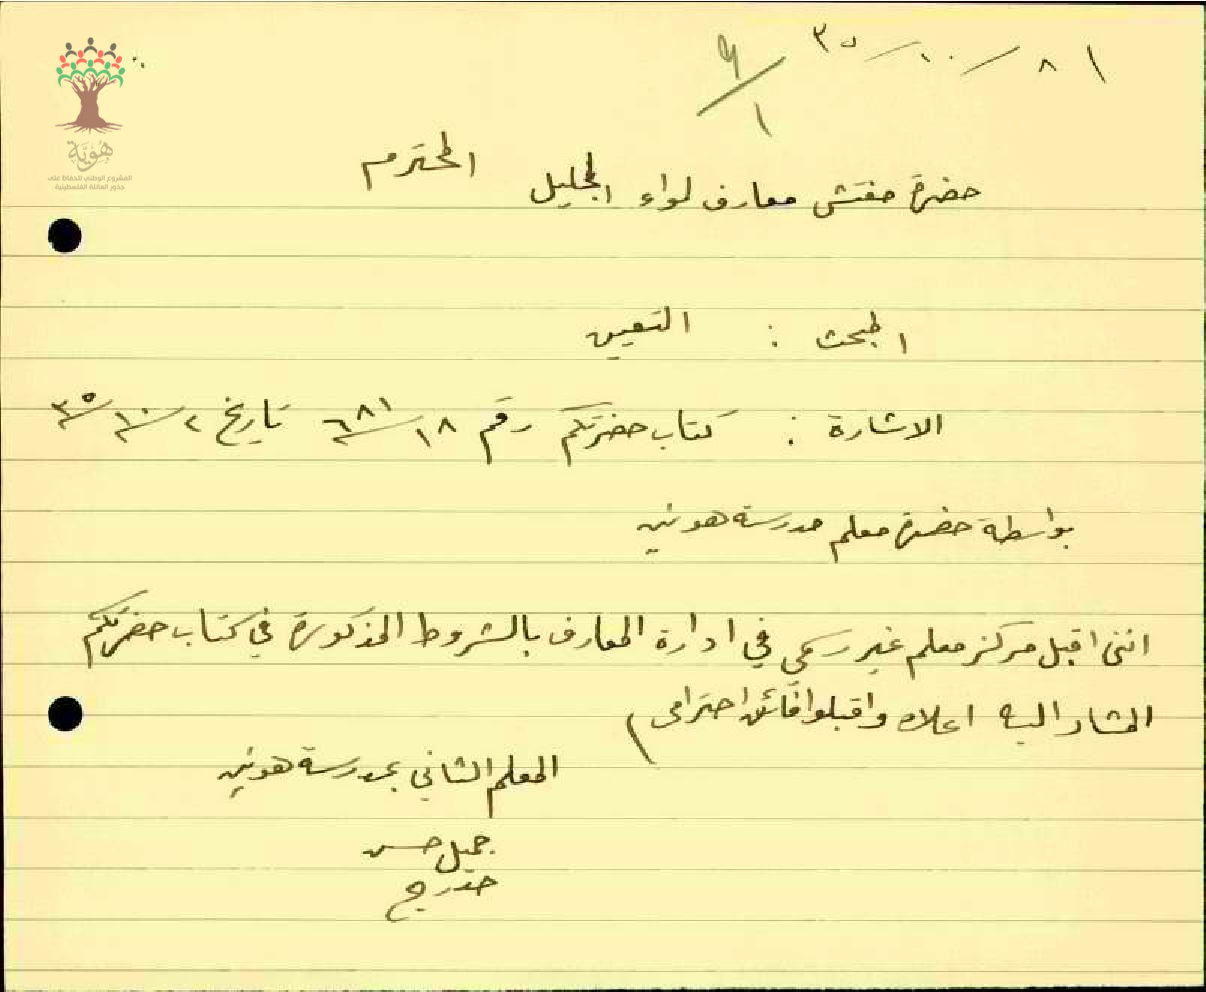 ١٨/١٠/٣٥
٩/١
حضرة مفتش معارف لواء الجليل المحترم
المبحث : التعيين
الاشارة : كتاب حضرتكم رقم ٦٨١/١٨ تاريخ ٢/١٠/٣٥
بواسطة حضرة معلم مدرسة هونين
انني اقبل مركز معلم غير رسمي في ادارة المعارف بالشروط المذكورة في كتاب حضرتكم
المشار اليه اعلاه واقبلوا فائق احترامي
المعلم الثاني بمدرسة هونين
جميل حسن
حدرج
هُوِيَّة
المشروع الوطني للحفاظ على
جذور العائلة الفلسطينية